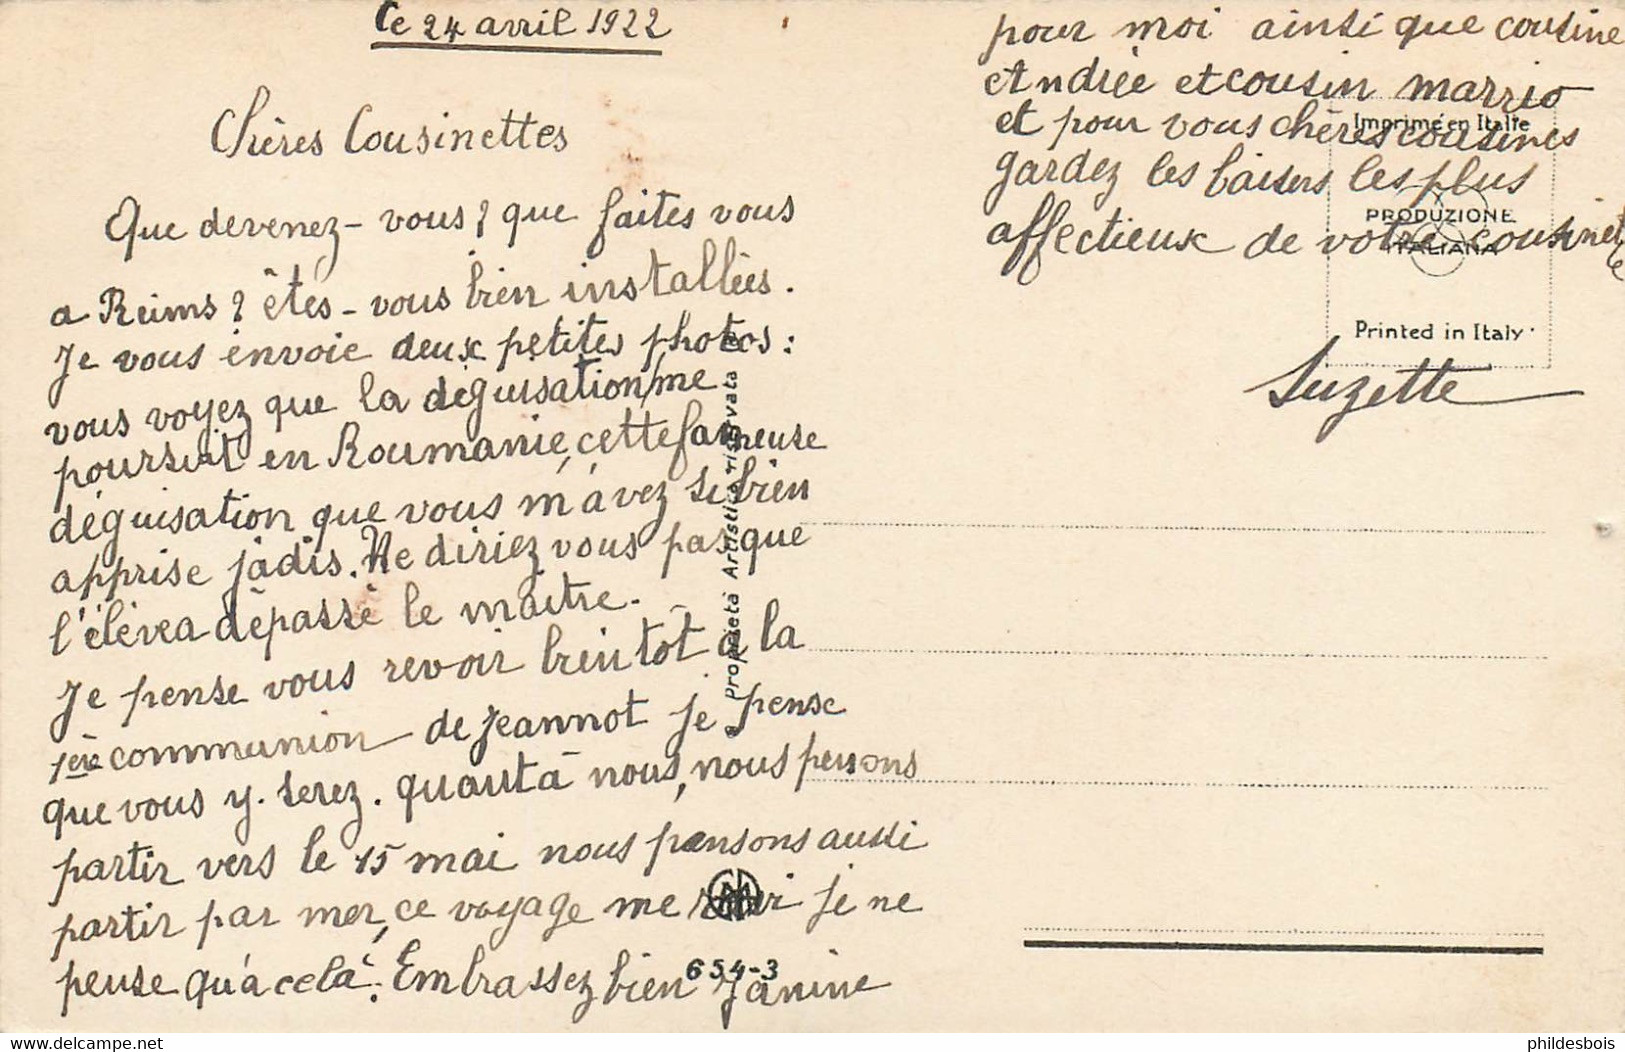 Ce 24 avril 1922
Chères Cousinettes
Que devenez-vous? que faites vous
a Reims? êtes-vous bien installées.
Je vous envoie deux petites photos:
vous voyez que la déguisation me
poursuit en Roumanie, cette fameuse
déguisation que vous m'avez si bien
apprise jadis. Ne diriez vous pas que
l'élève a dépassé le maitre.
Je pense vous revoir bientôt à la
1ère communion de Jeannot je pense
que vous y. serez. quant à nous, nous pensons
partir vers le 15 mai nous pensons aussi
partir par mer, ce voyage me ravi je ne
pense qu'a cela. Embrassez bien Janine
pour moi ainsi que cousine
Andrée et cousin marrio
et pour vous chères cousines
gardez les baisers les plus
affectieux de votre cousinette
Suzette
Imprimé en Italie
PRODUZIONE
ITALIANA
Printed in Italy
Proprietà Artistica riservata
654-3
delcampe.net
phildesbois